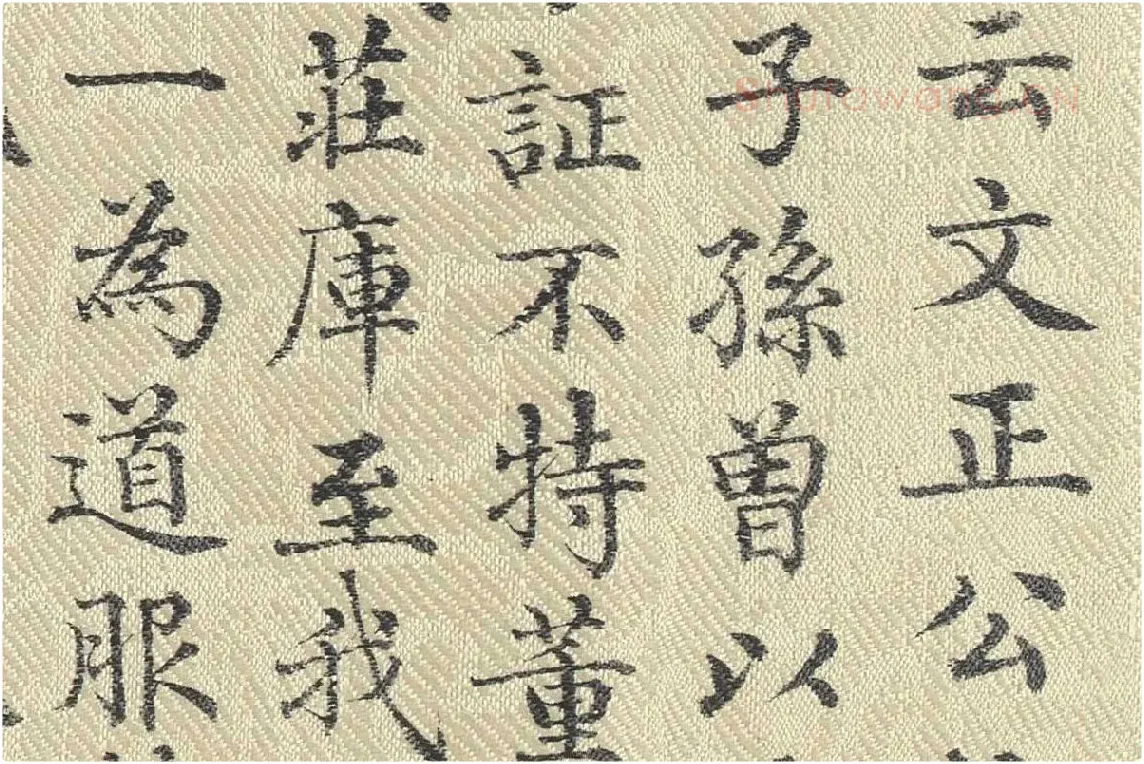 云文正公
子孫曾以
証不特董
莊庫至我
一為道服